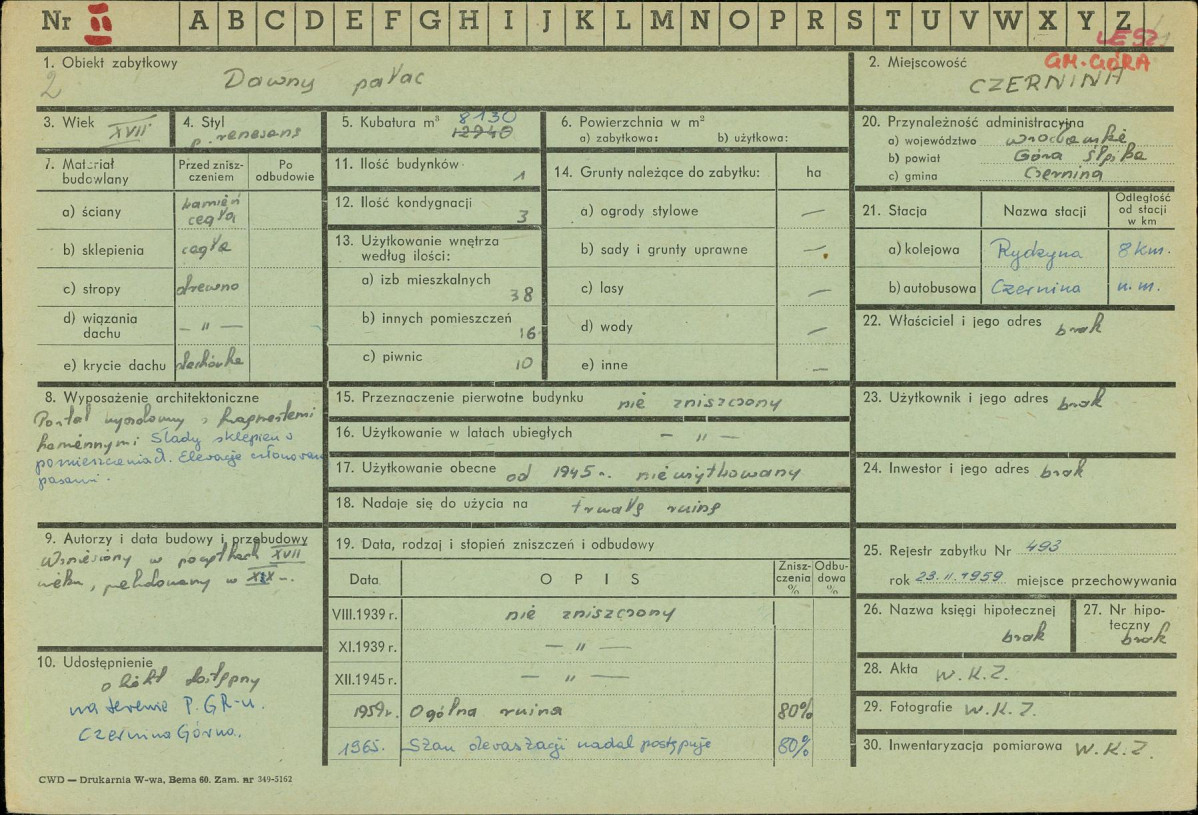 Nr II A B C D E F G H I J K L M N O P R S T U V W X Y Z
LESZ
GM. GÓRA
1. Obiekt zabytkowy
2
Dawny pałac
2. Miejscowość
CZERNINA
3. Wiek XVII.
4. Styl
p. renesans
5. Kubatura m³ 8130
12940
6. Powierzchnia w m²
a) zabytkowa: b) użytkowa:
20. Przynależność administracyjna
a) województwo wrocławskie
b) powiat Góra Śl.
c) gmina Czernina
7. Materiał budowlany
Przed zniszczeniem
Po odbudowie
a) ściany kamień cegła
b) sklepienia cegła
c) stropy drewno
d) wiązania dachu — " —
e) krycie dachu dachówka
11. Ilość budynków 1
12. Ilość kondygnacji 3
13. Użytkowanie wnętrza
według ilości:
a) izb mieszkalnych 38
b) innych pomieszczeń 16
c) piwnic 10
14. Grunty należące do zabytku: ha
a) ogrody stylowe —
b) sady i grunty uprawne —
c) lasy —
d) wody —
e) inne —
21. Stacja Nazwa stacji Odległość od stacji w km
a) kolejowa Rydzyna 8 km.
b) autobusowa Czernina n. m.
22. Właściciel i jego adres brak
8. Wyposażenie architektoniczne
Portal z fragmentami
kamiennymi Ślady sklepień w
pomieszczeniach. Elewacje członowane
pasami.
15. Przeznaczenie pierwotne budynku nie zniszczony
16. Użytkowanie w latach ubiegłych — " —
17. Użytkowanie obecne od 1945 r. nieużytkowany
18. Nadaje się do użycia na trwałą ruinę
23. Użytkownik i jego adres brak
24. Inwestor i jego adres brak
9. Autorzy i data budowy i przebudowy
Wzniesiony w początkach XVII
wieku, w XIX w.
19. Data, rodzaj i stopień zniszczeń i odbudowy
Data OPIS Zniszczenia % Odbudowa %
VIII.1939 r. nie zniszczony
XI.1939 r. — " —
XII.1945 r. — " —
1959 r. Ogólna ruina 80%
1965. Stan dewastacji nadal postępuje 80%
25. Rejestr zabytku Nr 493
rok 23.II.1959 miejsce przechowywania
26. Nazwa księgi hipotecznej
brak
27. Nr hipoteczny
brak
10. Udostępnienie
obiekt dostępny
na terenie P.GR-u.
Czernina Górna.
28. Akta W.K.Z.
29. Fotografie W.K.Z.
30. Inwentaryzacja pomiarowa W.K.Z.
CWD — Drukarnia W-wa, Bema 60. Zam. nr 349-5162